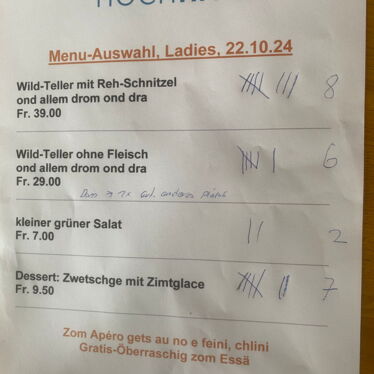 Menu-Auswahl, Ladies, 22.10.24
Wild-Teller mit Reh-Schnitzel
ond allem drom ond dra
Fr. 39.00
8
Wild-Teller ohne Fleisch
ond allem drom ond dra
Fr. 29.00
6
kleiner grüner Salat
Fr. 7.00
2
Dessert: Zwetschge mit Zimtglace
Fr. 9.50
7
Zom Apéro gets au no e feini, chlini
Gratis-Öberraschig zom Essä